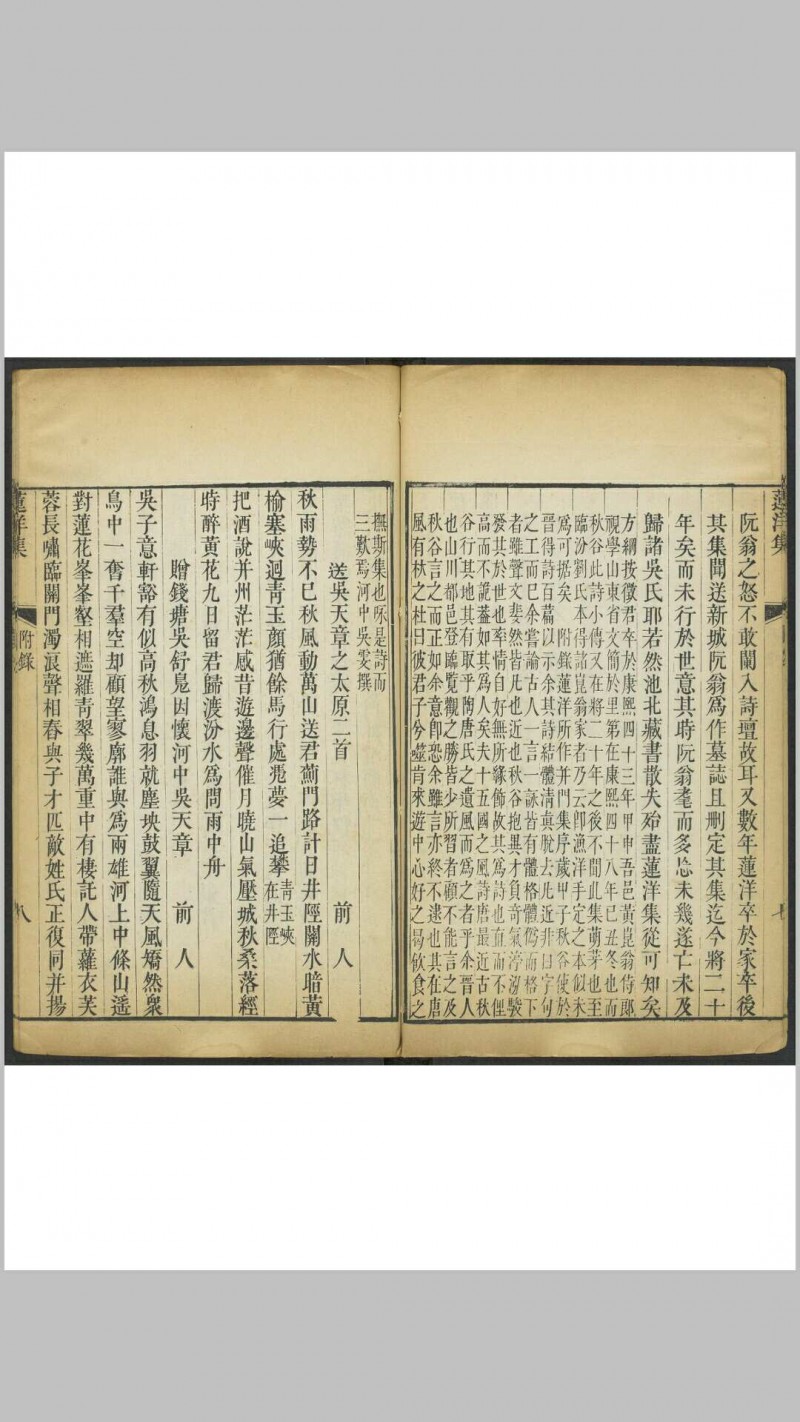 蓮洋集
阮翁之怒不敢闌入詩壇故耳又數年蓮洋卒於家卒後
其集聞送新城阮翁爲作墓誌且刪定其集迄今將二十
年矣而未行於世意其時阮翁耄而多忘未幾遂亡未及
歸諸吳氏耶若然池北藏書散失殆盡蓮洋集從可知矣
方綱按徵君卒於康熙四十三年甲申吾邑黃崑翁侍郞
視學山東省文簡於里第在康熙四十八年已丑冬也而
秋谷此詩小傳又在將二十年之後不聞此集萌芽也至
臨汾劉氏本得諸崑翁家者乃云卽漁洋手定之本似未
爲可據矣 附錄蓮洋所作幷門集序歲甲子秋谷使於
晉得詩百篇以示余其詩結體淸眞脫去凡近非日字句
之工而已余嘗論古人一言一詠皆有體格體僞而格下
者雖聲文斐然皆凡也近也秋谷抱異才負奇氣渟滀駿
發其於世也率情自好無所緣飾故其爲詩也直而不俚
高而不詭蓋如其爲人矣夫十五國之風詩唐最近古秋
谷行其地其有取乎陶唐氏之遺風而爲之者乎余晉人
也山川都邑登臨覽觀之勝皆少所習者顧不能言之及
秋谷言之而正如余意卽恐余雖言亦終不逮也其在唐
風有杕之杜曰彼君子兮噬肯來遊中心好之曷飮食之
撫斯集也咏是詩而
三歎焉河中吳雯撰
送吳天章之太原二首 前人
秋雨勢不已秋風動萬山送君薊門路計日井陘關水暗黃
榆塞峽迴靑玉顏猶餘馬行處凴夢一追攀靑玉峽在井陘
把酒說幷州茫茫感昔遊邊聲催月曉山氣壓城秋桑落經
時醉黃花九日留君歸渡汾水爲問雨中舟
贈錢塘吳舒鳧因懷河中吳天章 前人
吳子意軒豁有似高秋鴻息羽就塵坱鼓翼隨天風矯然衆
鳥中一奮千羣空却顧望寥廓誰與爲兩雄河上中條山遥
對蓮花峯峯壑相遮羅靑翠幾萬重中有棲託人帶蘿衣芙
蓉長嘯臨關門濁浪聲相舂與子才匹敵姓氏正復同幷揚
蓮洋集
附錄
八